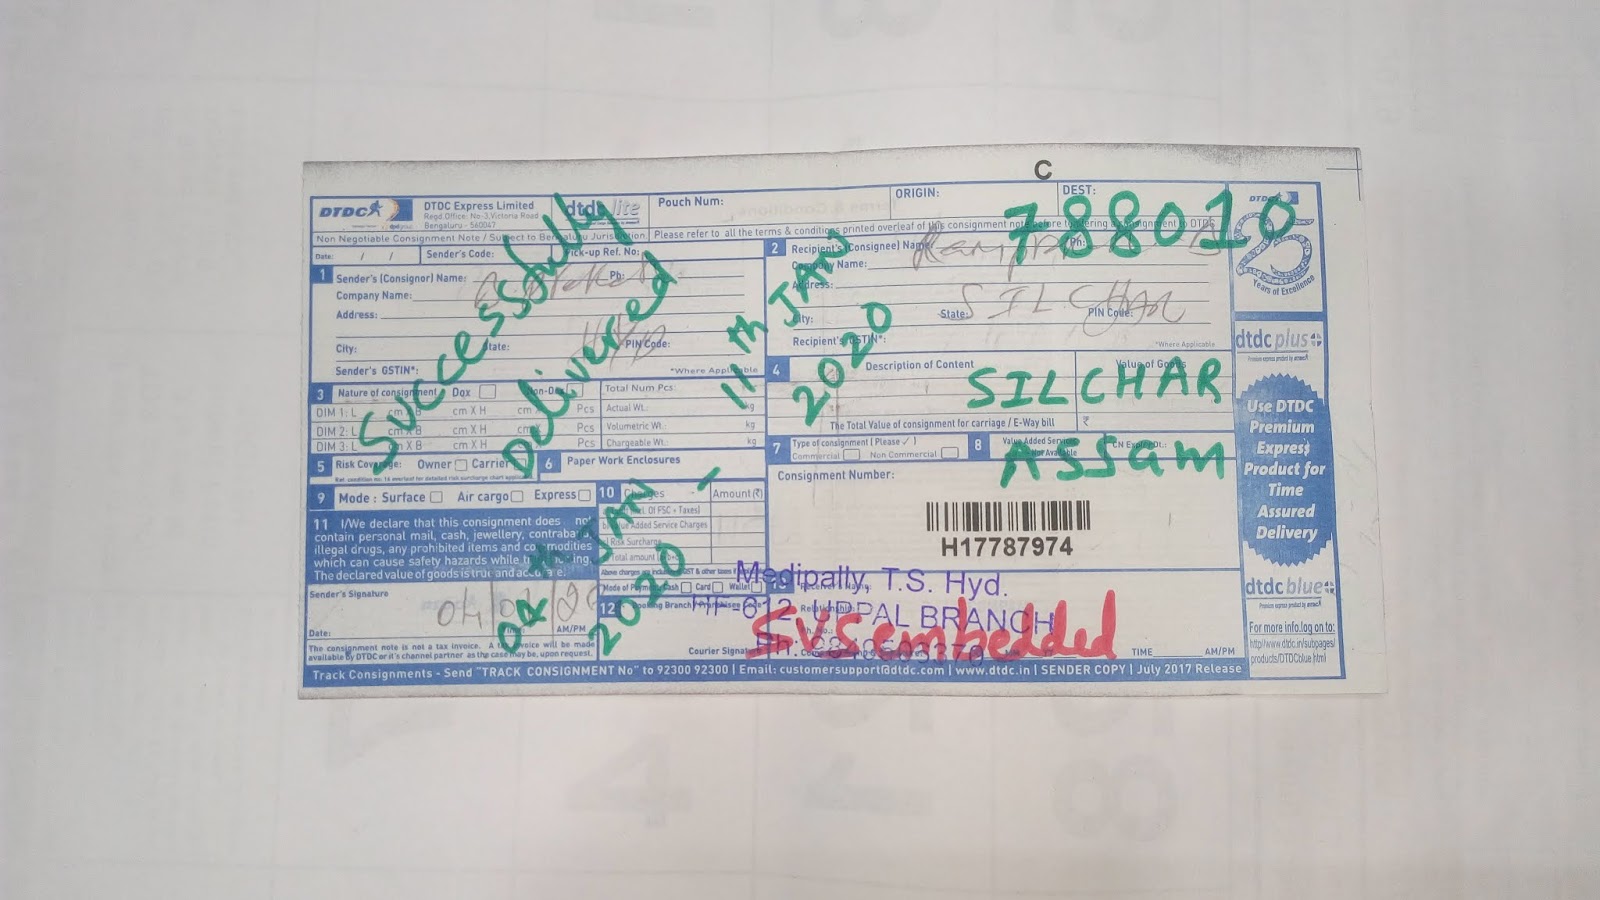 C
DTDC
DTDC Express Limited
Regd. Office: No-3, Victoria Road
Bengaluru - 560047
dtdc lite
Pouch Num:
ORIGIN:
DEST:
788010
Non Negotiable Consignment Note / Subject to Bengaluru Jurisdiction
Please refer to all the terms & conditions printed overleaf of this consignment note before tendering a consignment to DTDC
Date: / /
Sender's Code:
Pick-up Ref. No:
1 Sender's (Consignor) Name:
Ph:
Company Name:
Address:
HYD
City:
State:
PIN Code:
Sender's GSTIN*:
*Where Applicable
2 Recipient's (Consignee) Name
Ph:
Company Name:
Address:
SILCHAR
City:
State:
PIN Code:
Recipient's GSTIN*:
*Where Applicable
Years of Excellence
3 Nature of consignment
Dox
Non-Dox
DIM 1: L cm X B cm X H cm Pcs
DIM 2: L cm X B cm X H cm Pcs
DIM 3: L cm X B cm X H cm Pcs
Total Num Pcs
Actual Wt.: kg
Volumetric Wt.: kg
Chargeable Wt.: kg
4 Description of Content
Value of Goods
SILCHAR
The Total Value of consignment for carriage / E-Way bill ₹
5 Risk Coverage: Owner Carrier
6 Paper Work Enclosures
7 Type of consignment (Please ✓)
Commercial Non Commercial
8 Value Added Services
Not Available
CN Expiry Dt.:
Assam
9 Mode : Surface Air cargo Express
10 Charges Amount (₹)
Value Added Service Charges
Risk Surcharge
Total amount
Consignment Number:
H17787974
11 I/We declare that this consignment does not
contain personal mail, cash, jewellery, contraband,
illegal drugs, any prohibited items and commodities
which can cause safety hazards while
The declared value of goods is true and accurate.
Sender's Signature
Date:
AM/PM
Mode of Payment Cash Card Wallet
12 Booking Branch
Courier
Relationship
TIME AM/PM
The consignment note is not a tax invoice. A tax invoice will be made
available by DTDC or it's channel partner as the case may be, upon request.
Track Consignments - Send "TRACK CONSIGNMENT No" to 92300 92300 | Email: customersupport@dtdc.com | www.dtdc.in | SENDER COPY | July 2017 Release
Successfully
Delivered
11th JAN
2020
04th JAN -
2020
Medipally, T.S. Hyd.
UPPAL BRANCH
SVSembedded
dtdc plus
Premium express product by
Use DTDC
Premium
Express
Product for
Time
Assured
Delivery
dtdc blue
Premium express product by
For more info.log on to:
http://www.dtdc.in/subpages/
products/DTDCblue.html